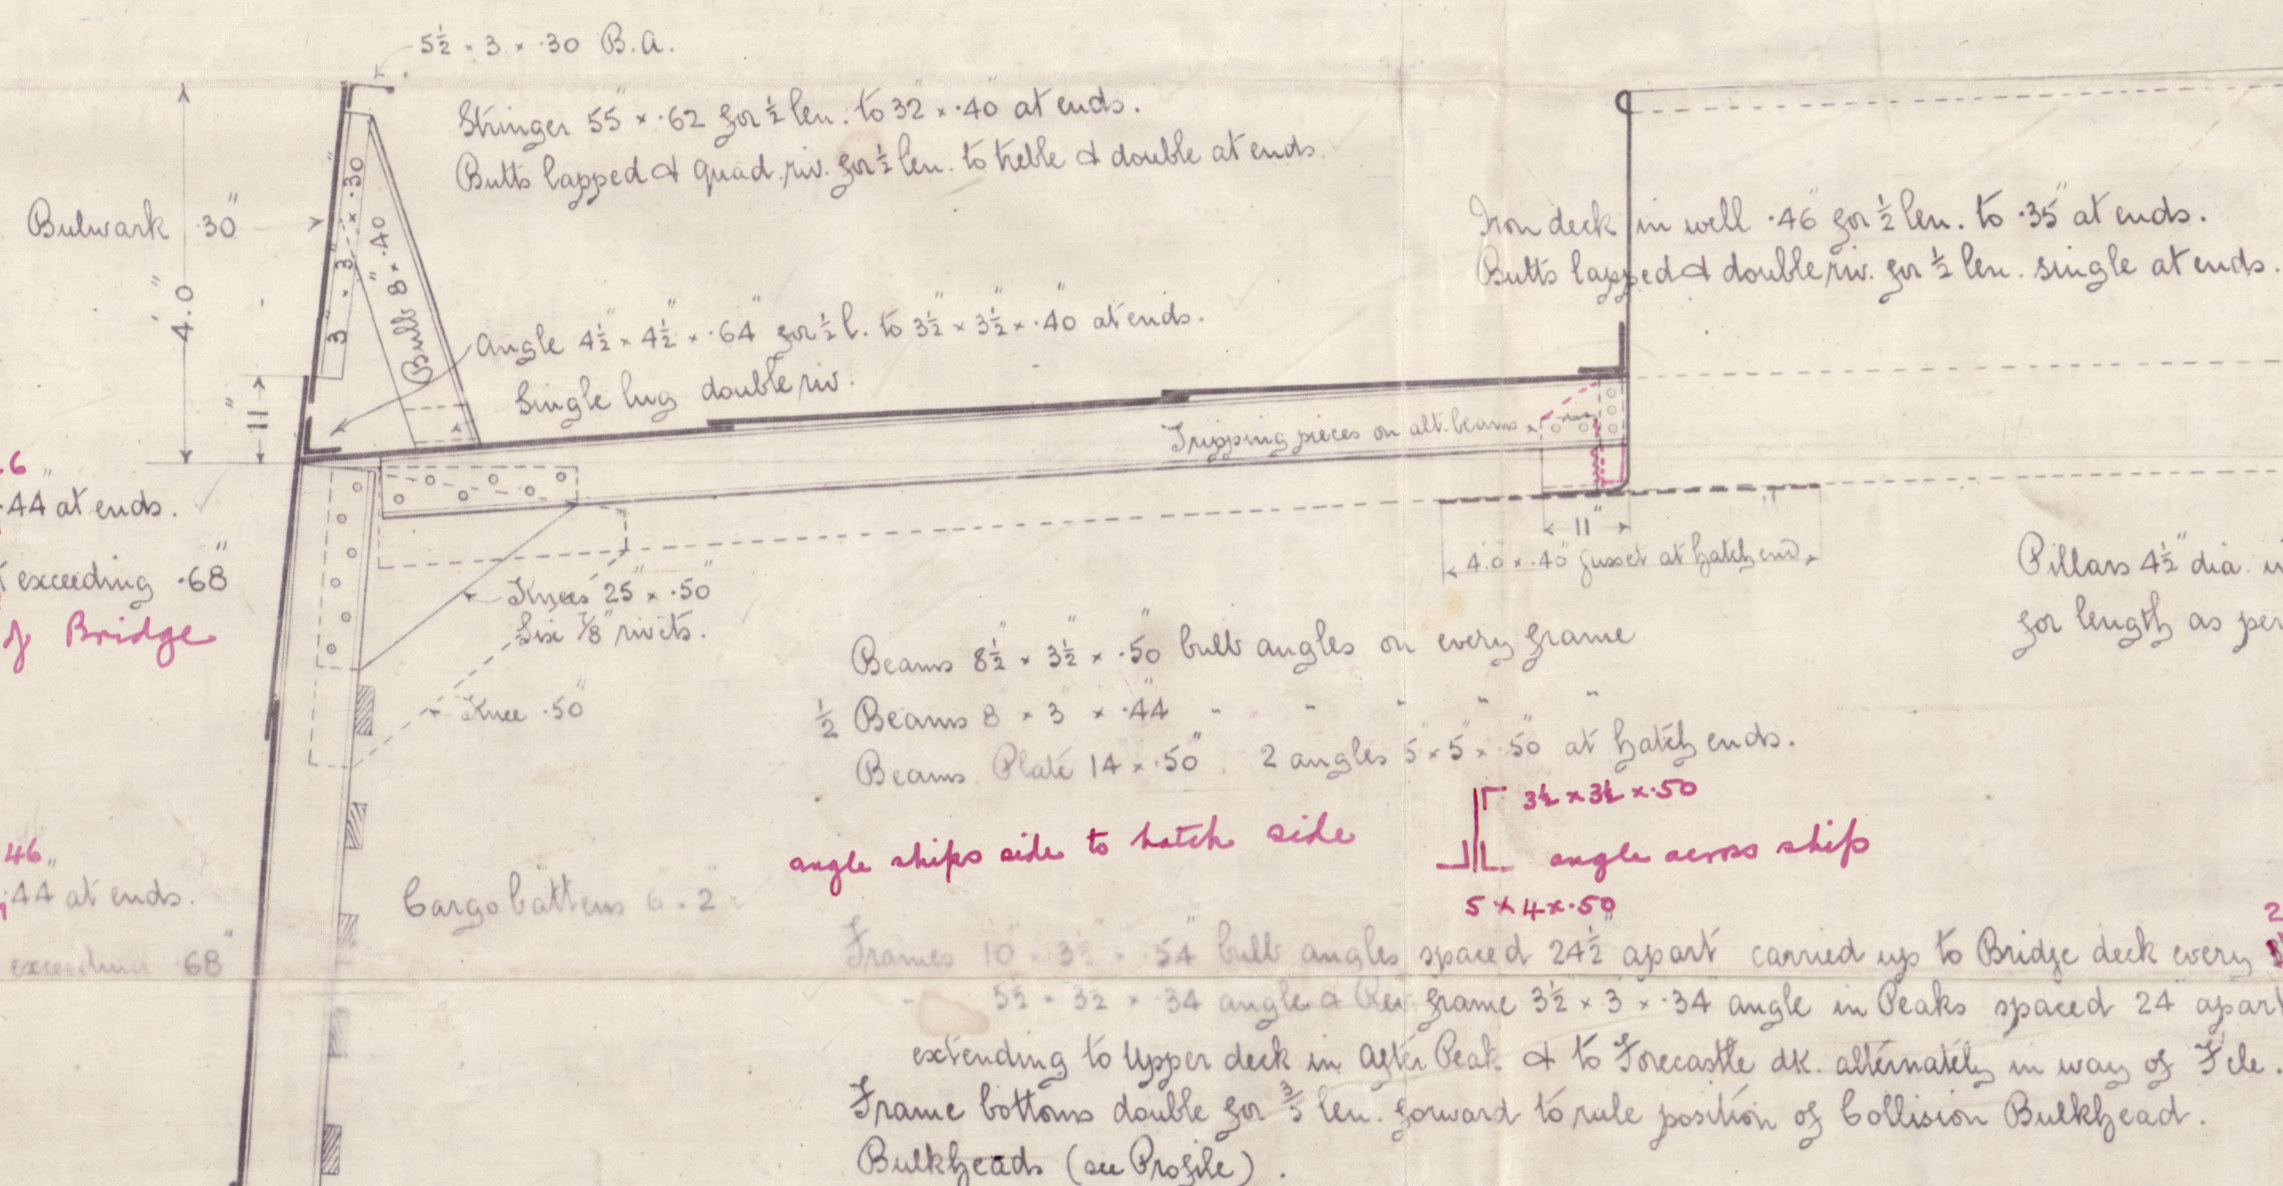 5½ × 3 × .30 B.A.
Stringer 55" × .62 for ½ len. to 32" × .40" at ends.
Butts lapped & quad. riv. for ½ len. to treble & double at ends.
Bulwark .30"
4'.0"
3" × 3" × .30
Bulb 8" × .40
11"
Angle 4½" × 4½" × .64" for ½ l. to 3½" × 3½" × .40" at ends.
Single lug double riv.
Iron deck in well .46" for ½ len. to .35" at ends.
Butts lapped & double riv. for ½ len. single at ends.
Tripping pieces on alt. beams
11"
4.0 × .40" gusset at hatch end
.6"
.44 at ends.
exceeding .68"
of Bridge
Knees 25" × .50"
Six ⅞" rivets.
Knee .50"
Pillars 4½" dia.
for length as per
Beams 8½" × 3½" × .50" bulb angles on every frame
½ Beams 8" × 3" × .44" " " " " "
Beams Plate 14 × .50". 2 angles 5" × 5" × .50" at hatch ends.
3½ × 3½ × .50
angle ships side to hatch side
angle across ship
5 × 4 × .50
46"
.44 at ends.
exceeding .68"
Cargo battens 6 . 2"
Frames 10" × 3½" × .54" bulb angles spaced 24½" apart carried up to Bridge deck every
" 5½ × 3½ × .34 angle & Rev. frame 3½ × 3 × .34" angle in Peaks spaced 24" apart
extending to Upper deck in After Peak & to Forecastle dk. alternately in way of F'cle.
Frame bottoms double for ⅗ len. forward to rule position of Collision Bulkhead.
Bulkheads (see Profile).